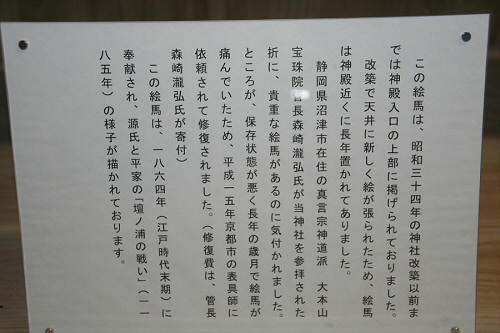 この絵馬は、昭和三十四年の神社改築以前ま
では神殿入口の上部に掲げられておりました。
改築で天井に新しく絵が張られたため、絵馬
は神殿近くに長年置かれてありました。
静岡県沼津市在住の真言宗神道派 大本山
宝珠院管長森崎瀧弘氏が当神社を参拝された
折に、貴重な絵馬があるのに気付かれました。
ところが、保存状態が悪く長年の歳月で絵馬が
痛んでいたため、平成一五年京都市の表具師に
依頼されて修復されました。(修復費は、管長
森崎瀧弘氏が寄付)
この絵馬は、一八六四年(江戸時代末期)に
奉献され、源氏と平家の「壇ノ浦の戦い」(一一
八五年)の様子が描かれております。